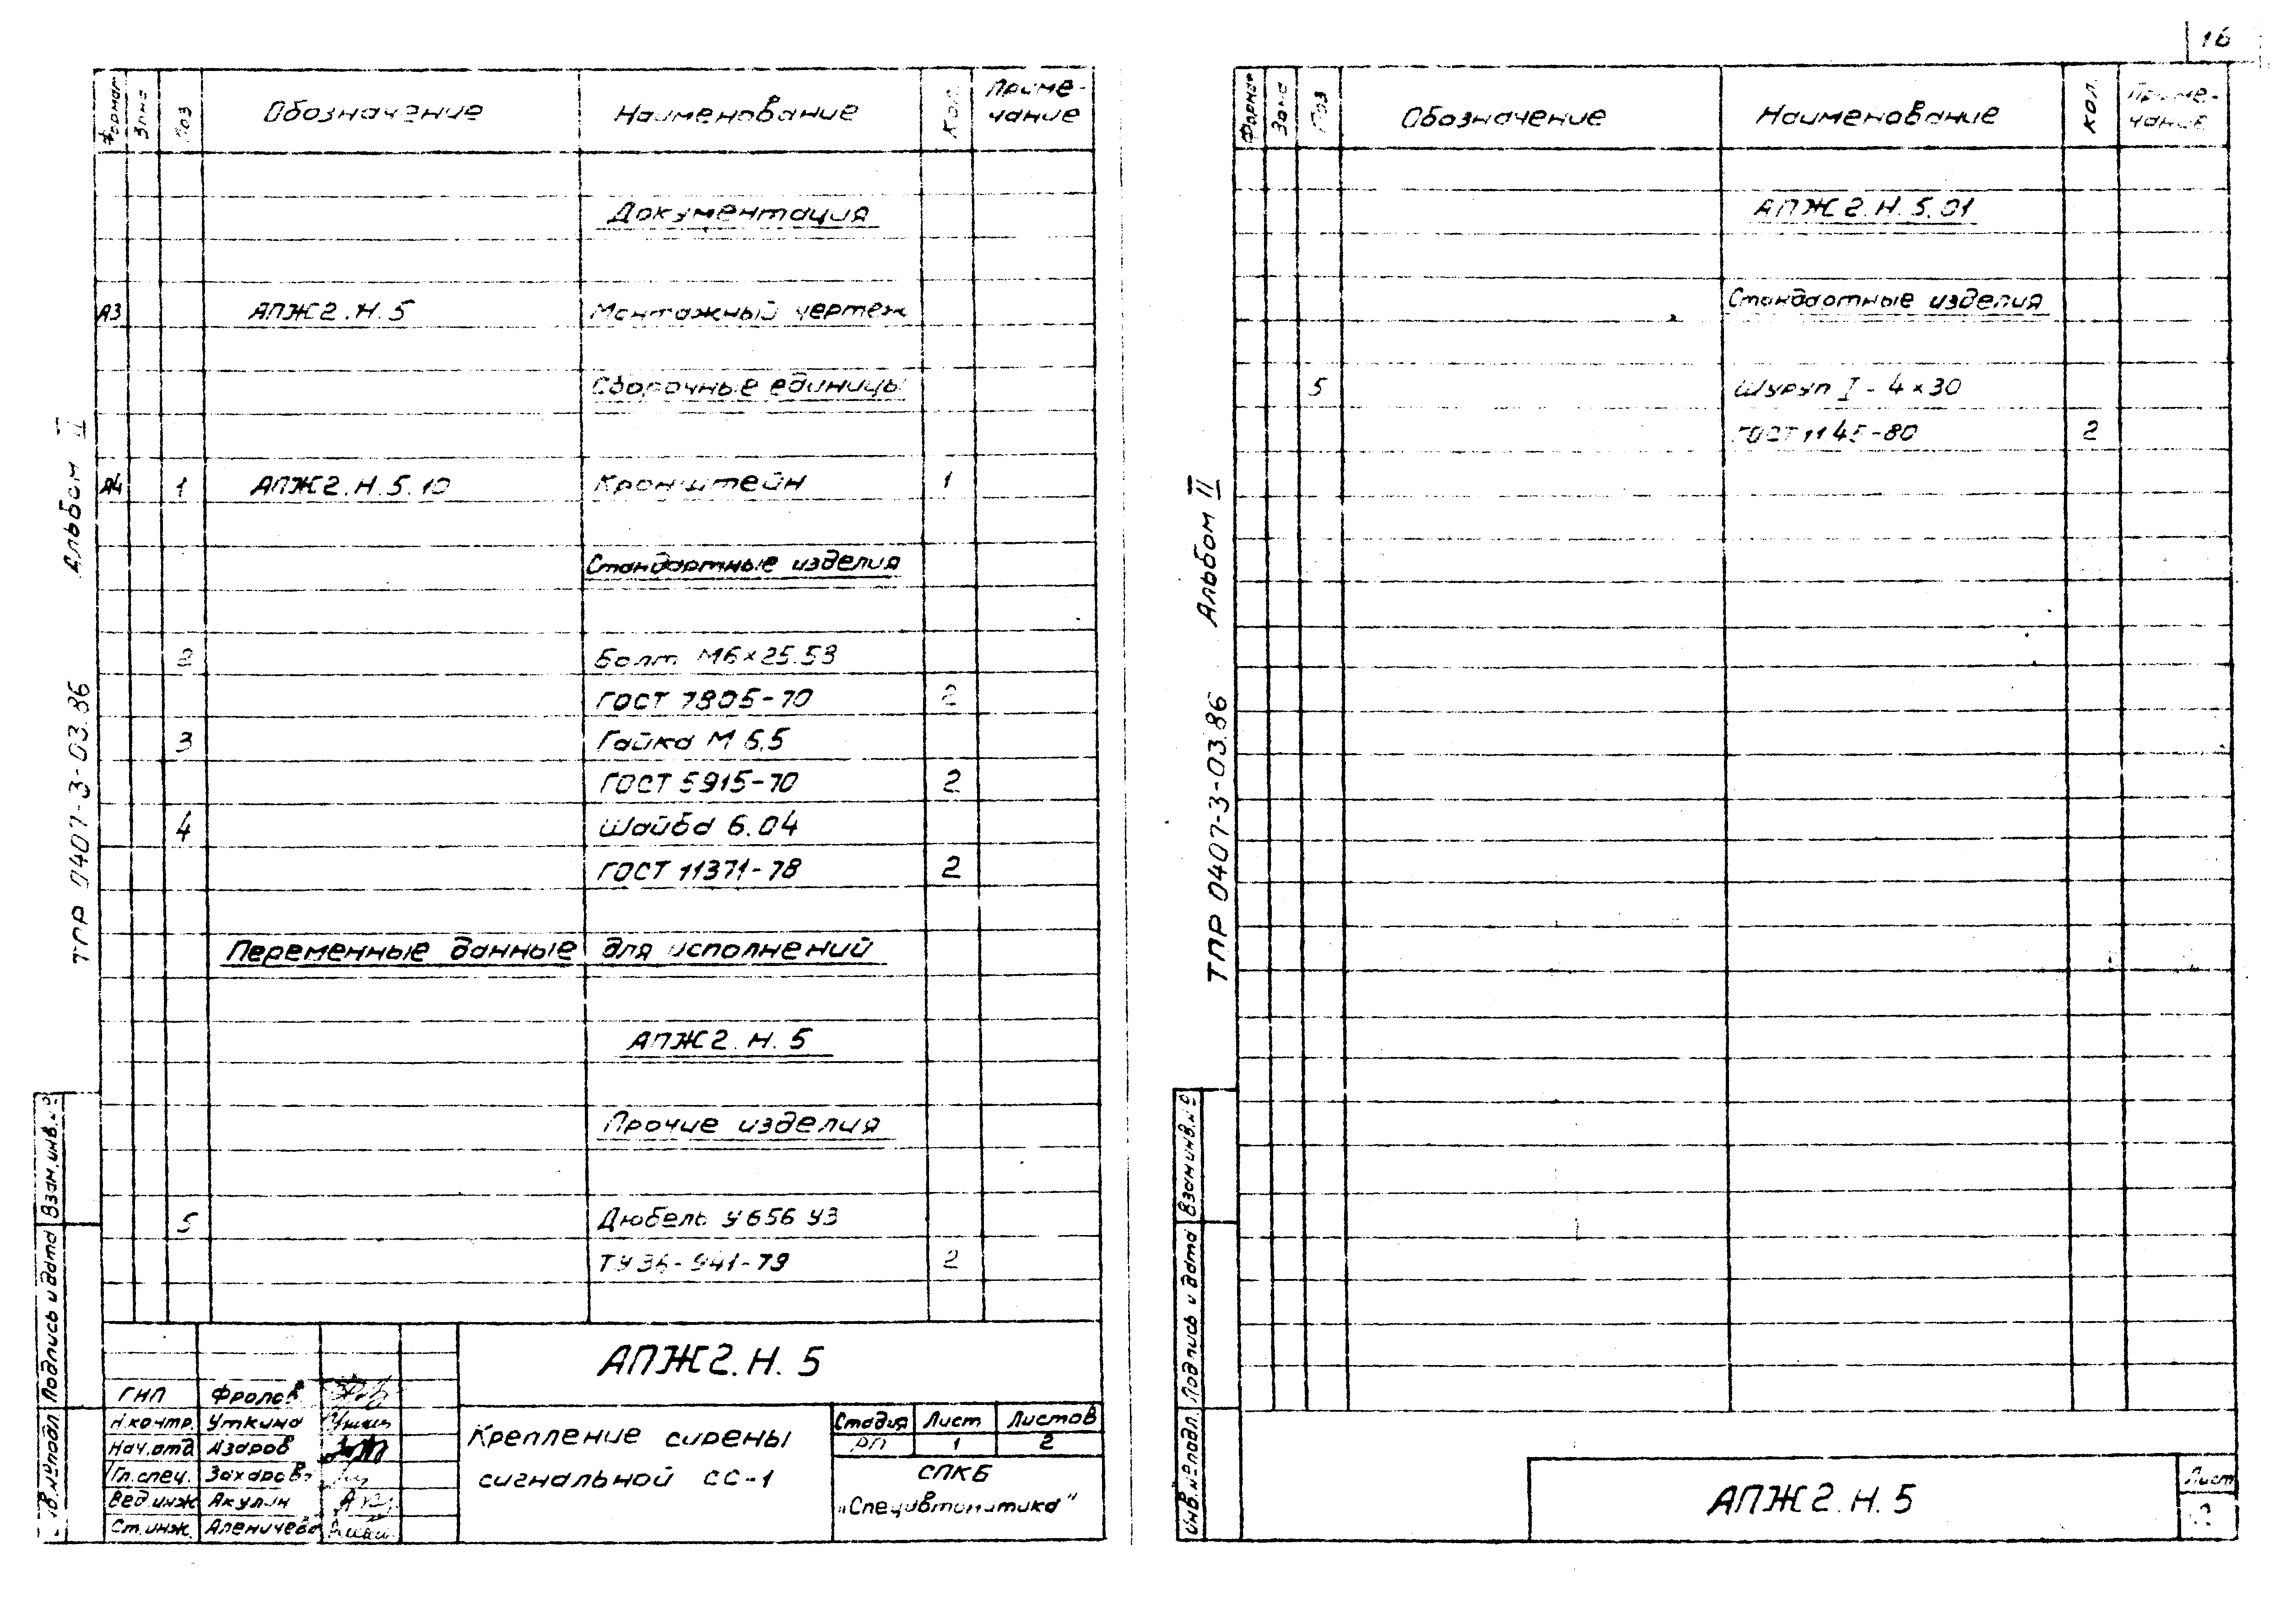 16
Формат Зона Поз Обозначение Наименование Кол. Приме-
чание
Документация
А3 АПЖ2.Н.5 Монтажный чертеж
Сборочные единицы
А4 1 АПЖ2.Н.5.10 Кронштейн 1
Стандартные изделия
2 Болт М6×25.58
ГОСТ 7805-70 2
3 Гайка М 6.5
ГОСТ 5915-70 2
4 Шайба 6.04
ГОСТ 11371-78 2
Переменные данные для исполнений
АПЖ2.Н.5
Прочие изделия
5 Дюбель У656 У3
ТУ36-941-79 2
АПЖ2.Н.5
ГИП Фролов
Н.контр. Уткина
Нач.отд Азаров
Гл.спец. Захаров
Вед.инж Акулин
Ст.инж. Аленичева
Крепление сирены
сигнальной СС-1
Стадия Лист Листов
РП 1 2
СПКБ
„Спецавтоматика"
ТПР 0407-3-03.86 Альбом II
Инв.№подл. Подпись и дата Взам.инв.№
Формат Зона Поз Обозначение Наименование Кол. Приме-
чание
АПЖ2.Н.5.01
Стандартные изделия
5 Шуруп I-4×30
ГОСТ 1145-80 2
АПЖ2.Н.5
Лист
2
ТПР 0407-3-03.86 Альбом II
Инв.№подл. Подпись и дата Взам.инв.№